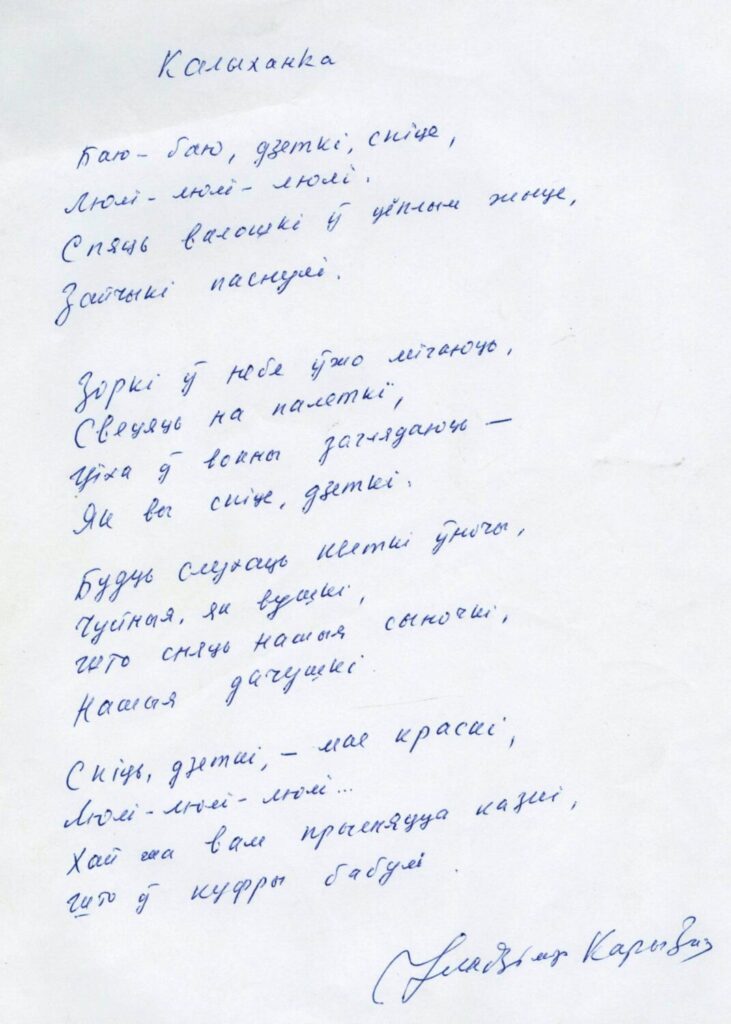 Калыханка
Баю-баю, дзеткі, спіце,
Люлі-люлі-люлі.
Спяць валошкі ў цёплым жыце,
Зайчыкі паснулі.
Зоркі ў небе ўжо мігаюць,
Свецяць на палеткі,
Ціха ў вокны заглядаюць —
Як вы спіце, дзеткі.
Будуць слухаць кветкі ўночы,
Чуйныя, як вушкі,
Што сняць нашыя сыночкі,
Нашыя дачушкі.
Спіць, дзеткі, – мае краскі,
Люлі-люлі-люлі...
Хай жа вам прысняцца казкі,
Што ў куфры бабулі.
Уладзімір Карызна